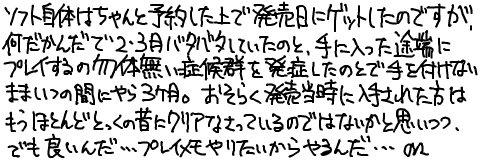 ソフト自体はちゃんと予約した上で発売日にゲットしたのですが、
何だかんだで2・3月バタバタしていたのと、手に入った途端に
プレイするの勿体無い症候群を発症したのとで手を付けない
ままいつの間にやら3ヶ月。おそらく発売当時に入手された方は
もうほとんどとっくの昔にクリアなさっているのではないかと思いつつ、
でも良いんだ…プレイメモやりたいからやるんだ… orz